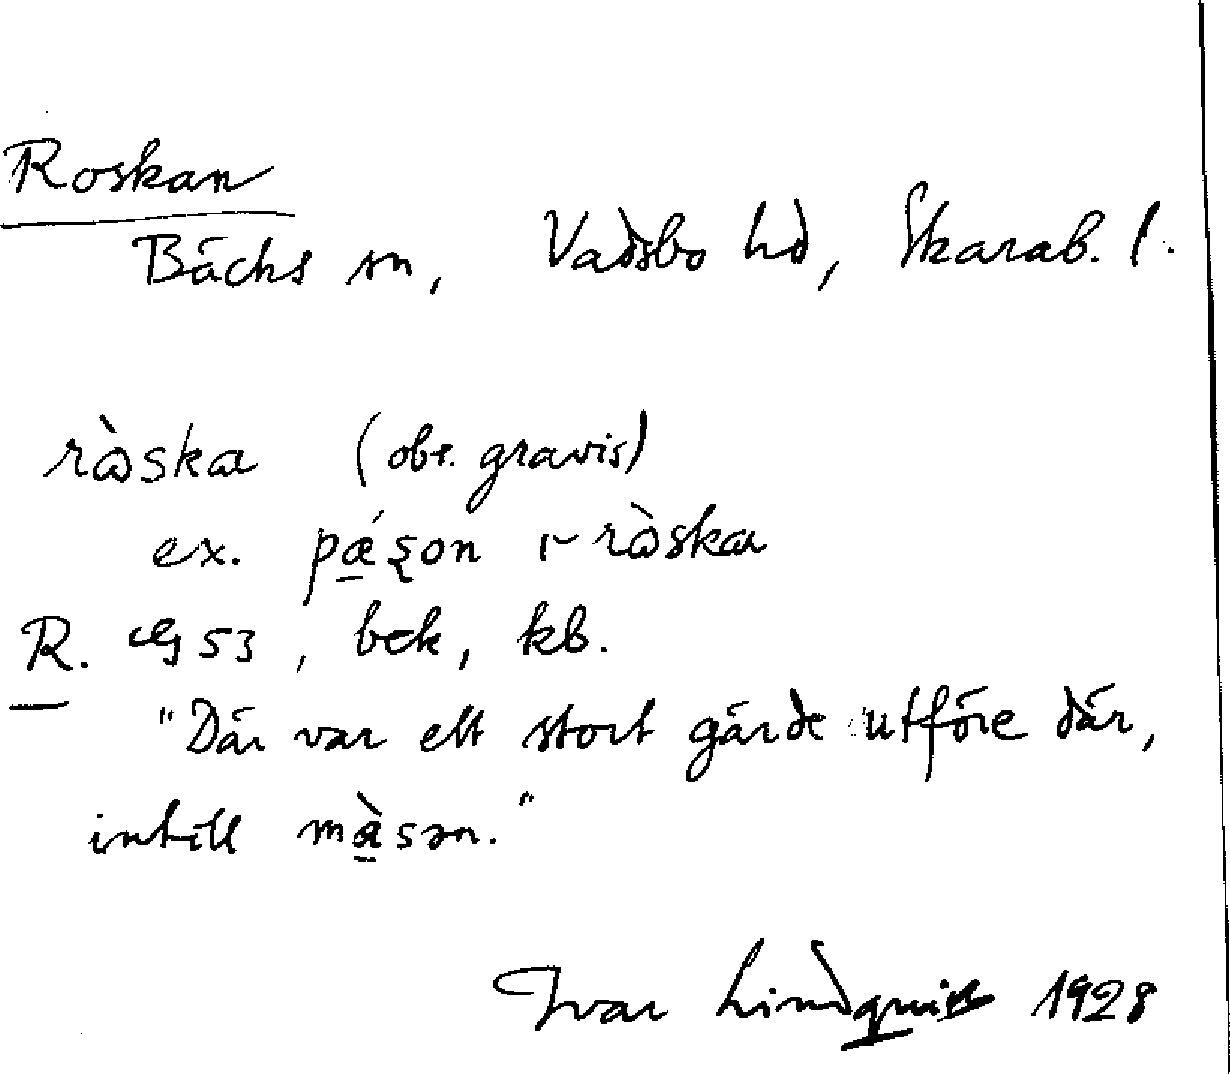 Roskan
Bäcks sn, Vadsbo hd, Skarab. l.
ròska (obs. gravis)
ex. pǻson i ròska
R. 53, bek, kb.
"Där var ett stort gärde utföre där,
intill mà̱sən."
Ivar Lindquist 1928